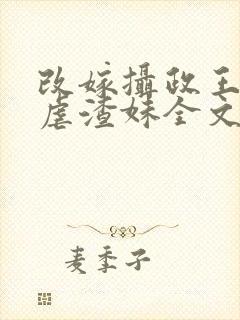 改嫁攝政王
虐渣妹全文
麦季子